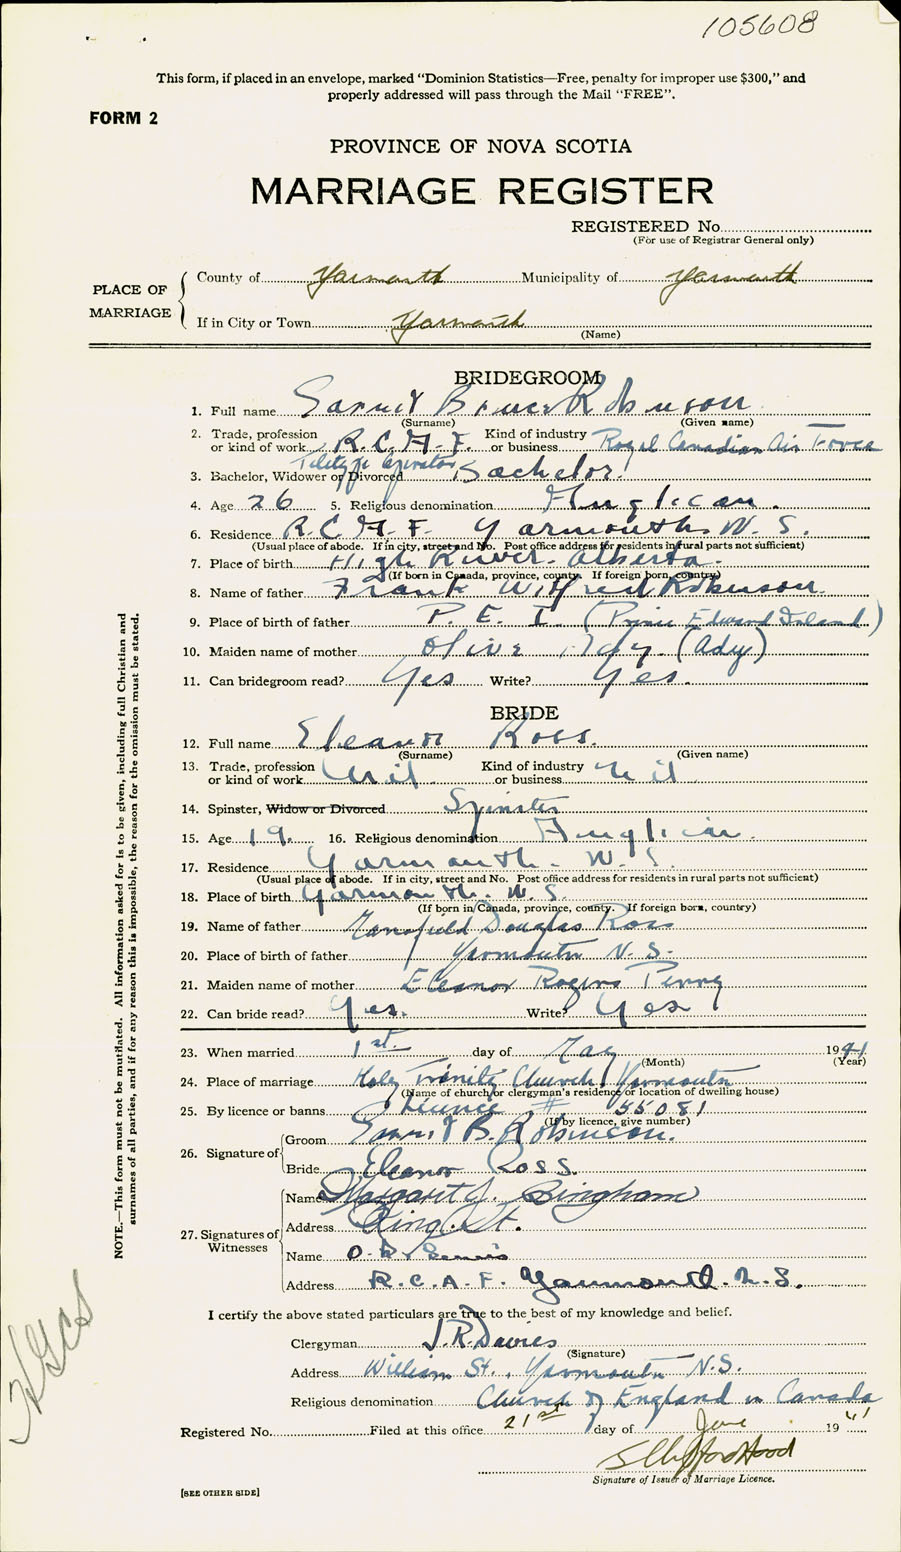 105608
This form, if placed in an envelope, marked "Dominion Statistics—Free, penalty for improper use $300," and
properly addressed will pass through the Mail "FREE".
FORM 2
PROVINCE OF NOVA SCOTIA
MARRIAGE REGISTER
REGISTERED No.
(For use of Registrar General only)
PLACE OF MARRIAGE
County of Yarmouth Municipality of Yarmouth
If in City or Town Yarmouth
(Name)
BRIDEGROOM
1. Full name Samuel Bruce Robinson
(Surname) (Given name)
2. Trade, profession or kind of work R.C.A.F. Kind of industry or business Royal Canadian Air Force
Teletype Operator
3. Bachelor, Widower or Divorced Bachelor.
4. Age 26 5. Religious denomination Anglican.
6. Residence R.C.A.F. Yarmouth. N.S.
(Usual place of abode. If in city, street and No. Post office address for residents in rural parts not sufficient)
7. Place of birth High River. Alberta.
(If born in Canada, province, county. If foreign born, country)
8. Name of father Frank Wilfred Robinson.
9. Place of birth of father P. E. I. (Prince Edward Island)
10. Maiden name of mother Olive Ady. (Ady)
11. Can bridegroom read? Yes Write? Yes.
BRIDE
12. Full name Eleanor Ross.
(Surname) (Given name)
13. Trade, profession or kind of work Nil. Kind of industry or business Nil.
14. Spinster, Widow or Divorced Spinster
15. Age 19. 16. Religious denomination Anglican.
17. Residence Yarmouth. N. S.
(Usual place of abode. If in city, street and No. Post office address for residents in rural parts not sufficient)
18. Place of birth Yarmouth. N. S.
(If born in Canada, province, county. If foreign born, country)
19. Name of father Mansfield Douglas Ross
20. Place of birth of father Yarmouth N. S.
21. Maiden name of mother Eleanor Rogers Perry
22. Can bride read? Yes. Write? Yes
23. When married 1st day of May 1941
(Month) (Year)
24. Place of marriage Holy Trinity Church, Yarmouth
(Name of church or clergyman's residence or location of dwelling house)
25. By licence or banns Licence # 55081
(If by licence, give number)
26. Signature of
Groom Samuel B. Robinson.
Bride Eleanor Ross.
27. Signatures of Witnesses
Name Margaret J. Bingham
Address King St.
Name
Address R.C.A.F. Yarmouth. N.S.
I certify the above stated particulars are true to the best of my knowledge and belief.
Clergyman J.R. Davies
(Signature)
Address William St., Yarmouth N.S.
Religious denomination Church of England in Canada
Registered No. Filed at this office 21st day of June 1941
Signature of Issuer of Marriage Licence.
[SEE OTHER SIDE]
NOTE.—This form must not be mutilated. All information asked for is to be given, including full Christian and
surnames of all parties, and if for any reason this is impossible, the reason for the omission must be stated.